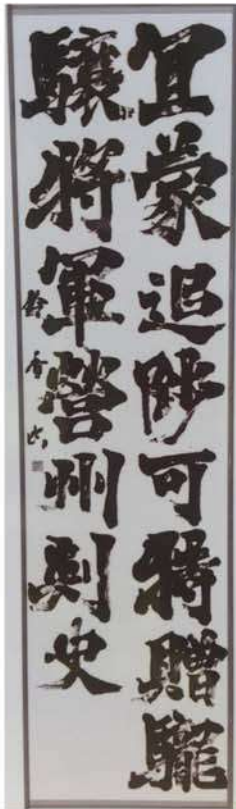 宜蒙追陟可特贈龍
驤將軍營州刺史